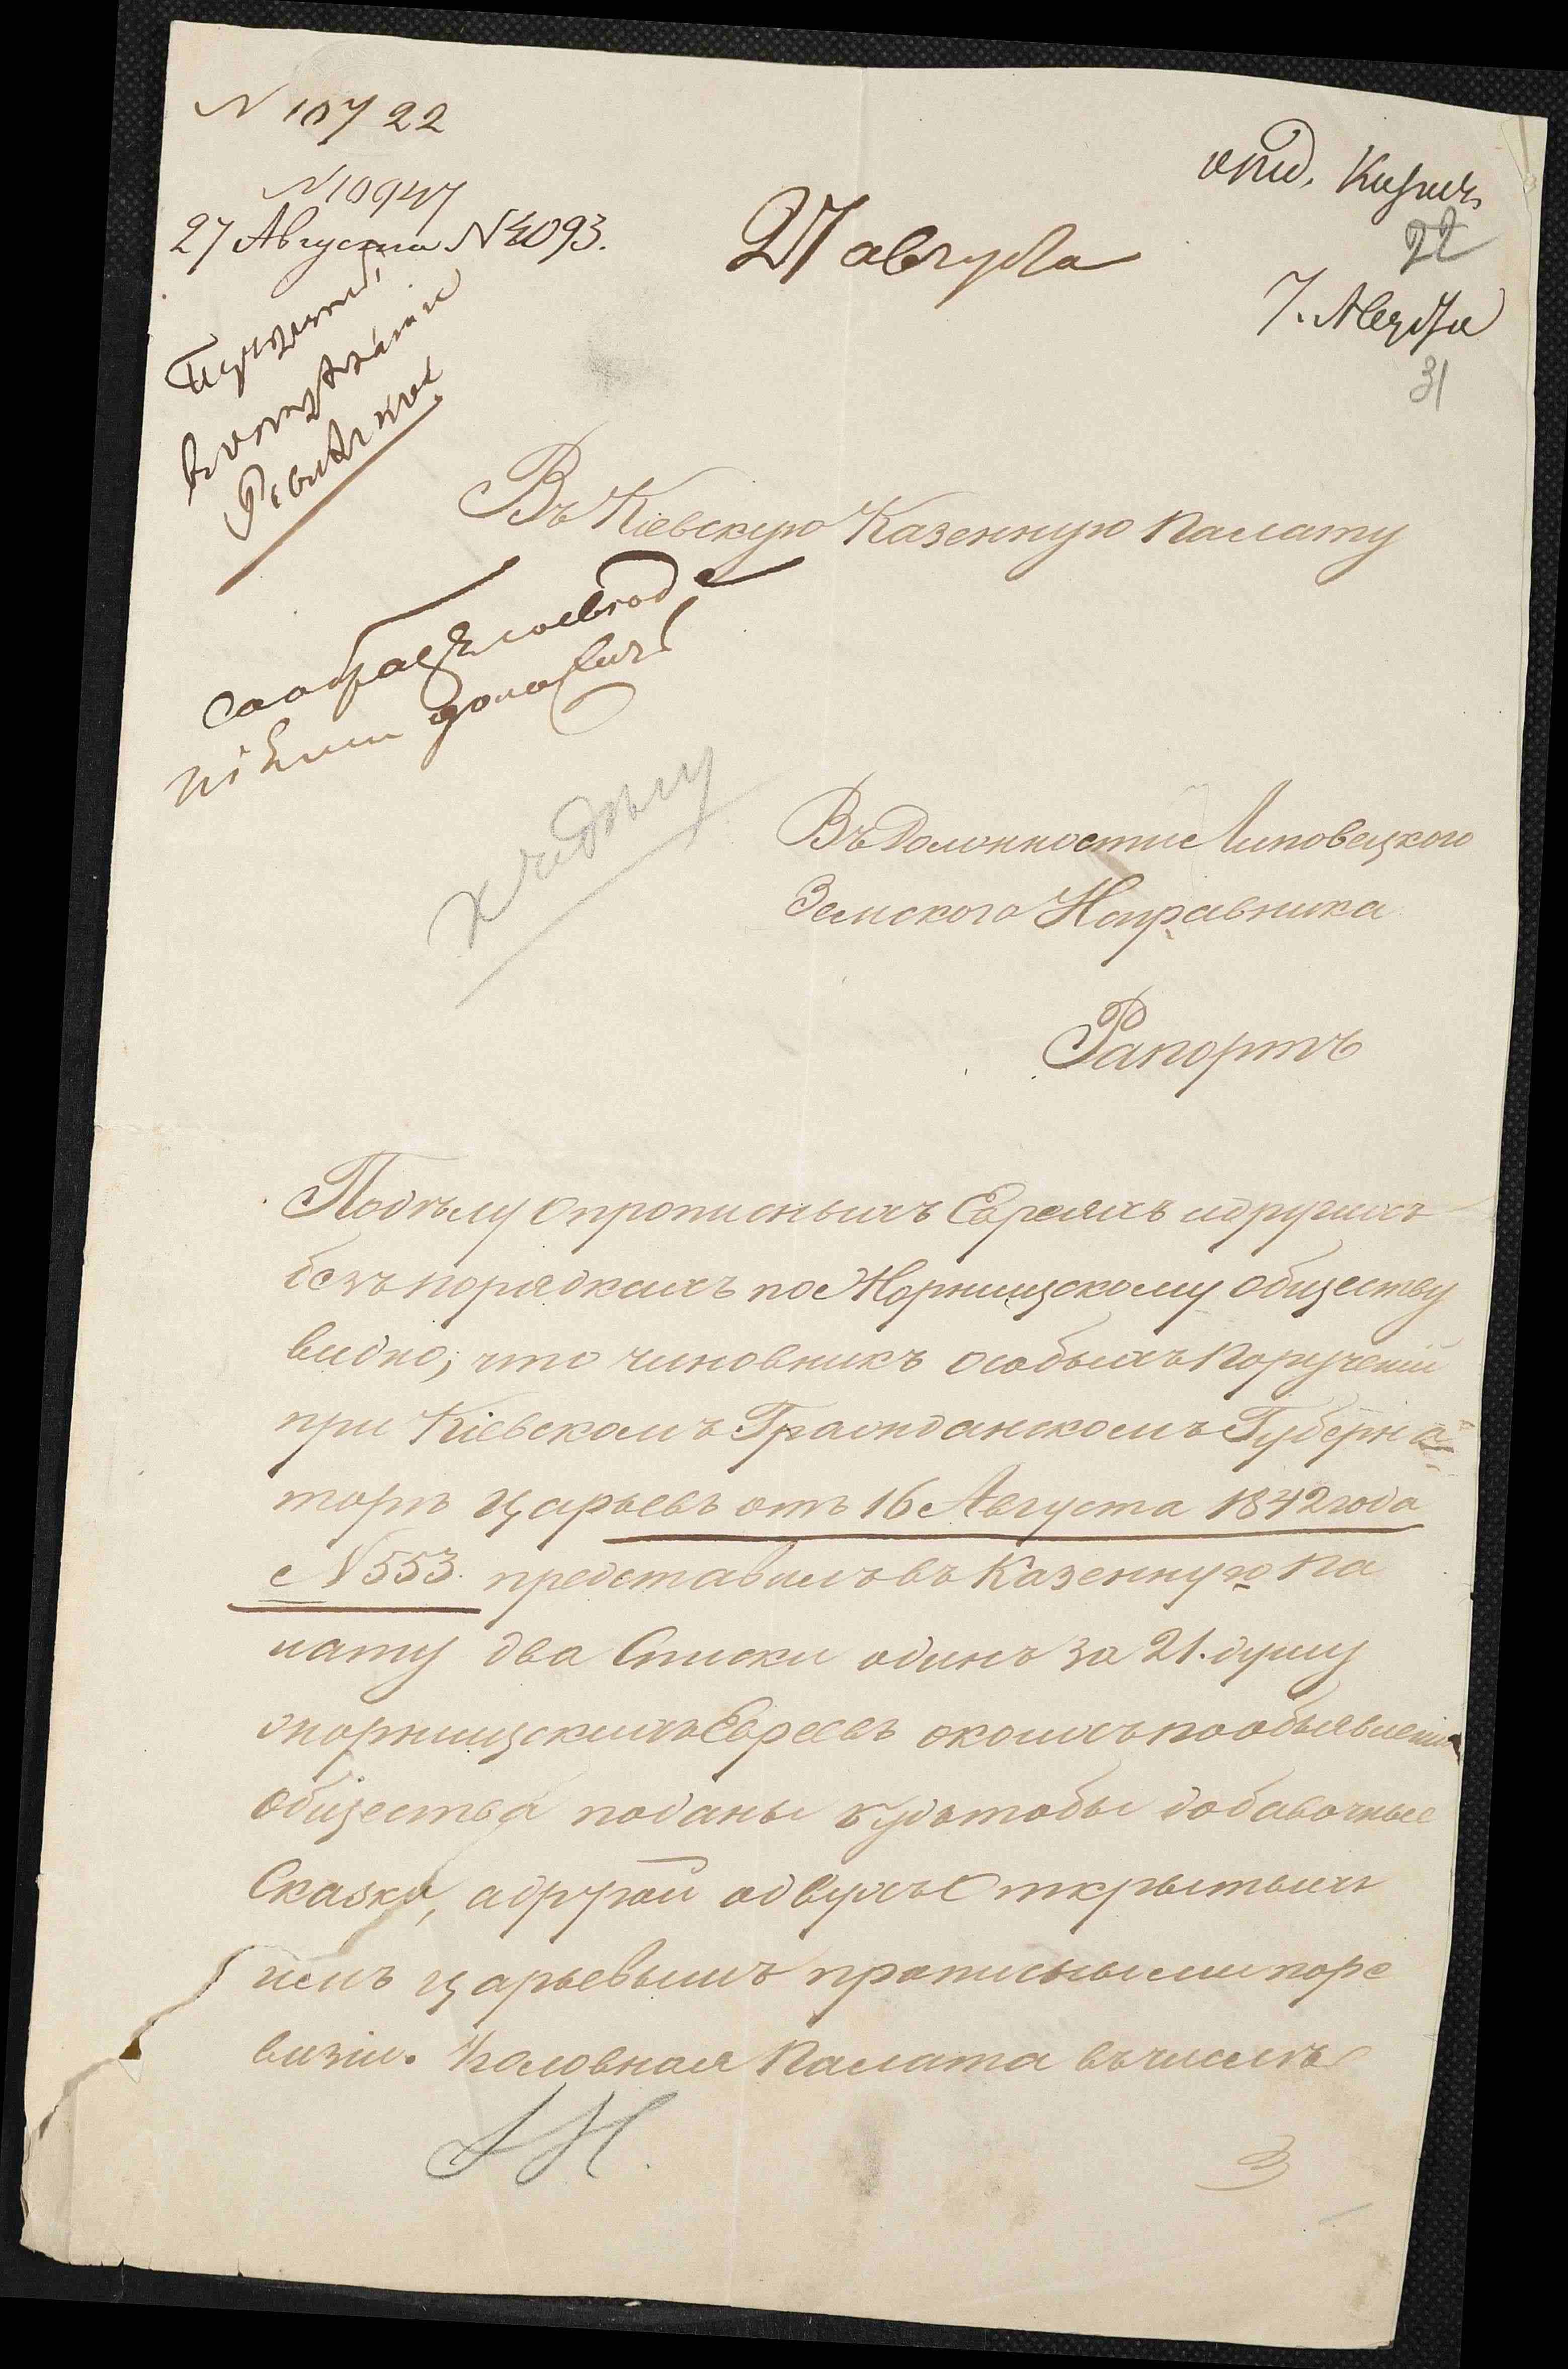 N 10722
N 10947
27 Августа N 4093.
27 августа
отд.
22
7. Августа
31
Въ Кіевскую Казенную Палату
къ дѣлу
Въ Должности Липовецкого
Земского Исправника
Рапортъ
По дѣлу о прописныхъ Евреяхъ и другихъ
безъпорядкахъ по Жорнищскому обществу
видно, что чиновникъ особыхъ порученій
при Кіевскомъ Гражданскомъ Губерна
торѣ Царьевъ отъ 16 Августа 1842 года
N 553. представилъ въ Казенную Па
лату два Списки одинъ за 21. душу
жорнищскихъ Евреевъ о коихъ по объявленію
общества поданы будътобы добавочные
Сказки, а другой о двухъ Открытыхъ
имъ Царьевымъ прописными по ре
визіи. Каловная Палата въ числѣ
3